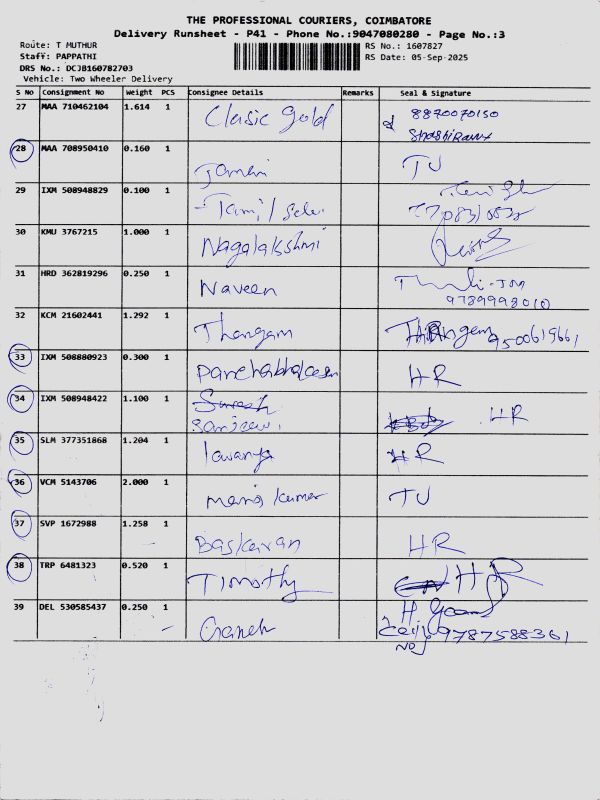 THE PROFESSIONAL COURIERS, COIMBATORE
Delivery Runsheet - P41 - Phone No.:9047080280 - Page No.:3
Route: T MUTHUR
RS No.: 1607827
Staff: PAPPATHI
RS Date: 05-Sep-2025
DRS No.: DCJB160782703
Vehicle: Two Wheeler Delivery
S No Consignment No Weight PCS Consignee Details Remarks Seal & Signature
27 MAA 710462104 1.614 1 Clasic gold 8870070150
28 MAA 708950410 0.160 1 TJ
29 IXM 508948829 0.100 1 Tamil selvi
30 KMU 3767215 1.000 1 Nagalakshmi
31 HRD 362819296 0.250 1 Naveen
9789998010
32 KCM 21602441 1.292 1 Thangam Thangam 9500619661
33 IXM 508880923 0.300 1 HR
34 IXM 508948422 1.100 1 HR
35 SLM 377351868 1.204 1 lavanya HR
36 VCM 5143706 2.000 1 manoj kumar TJ
37 SVP 1672988 1.258 1 Baskaran HR
38 TRP 6481323 0.520 1 Timothy HR
39 DEL 530585437 0.250 1 Ganesh 9787588361